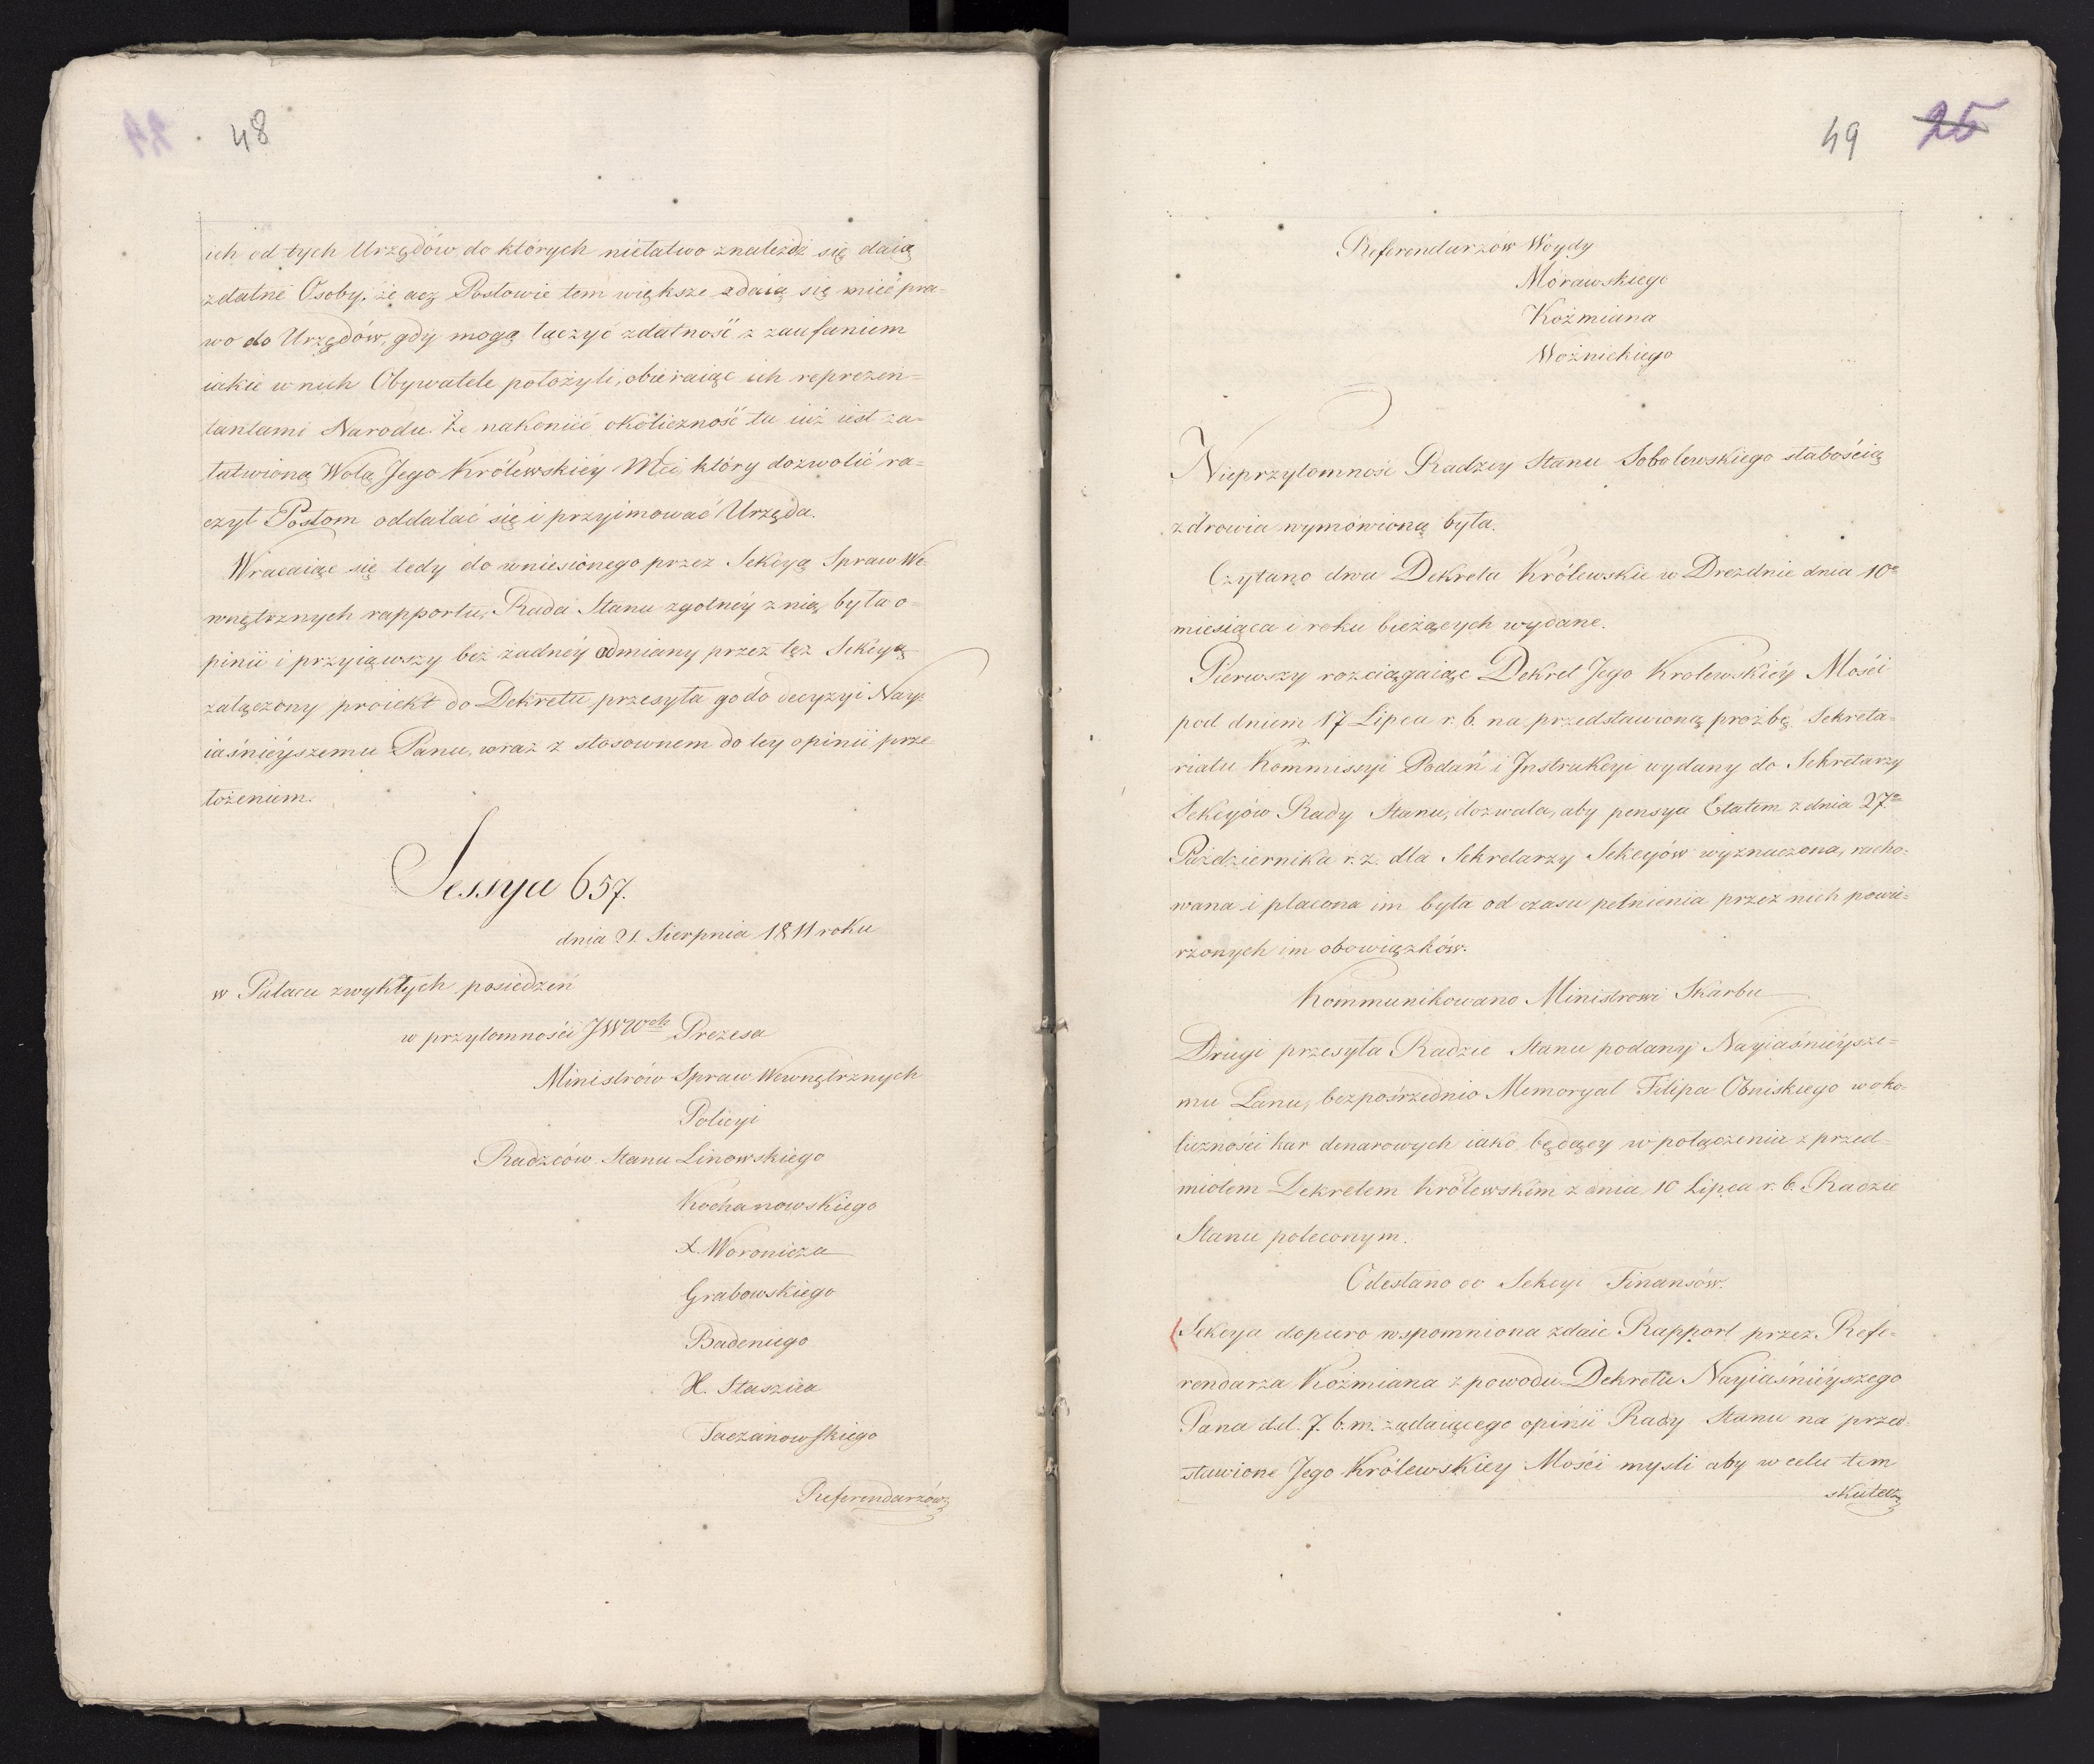 48
ich od tych Urzędów, do których niełatwo znaleźdź się daią
zdatne Osoby, że acz Posłowie tem większe zdaią się mieć pra=
wo do Urzędów, gdy mogą łączyć zdatność z zaufaniem
iakie w nich Obywatele położyli, obieraiąc ich reprezen=
tantami Narodu. Że nakoniec okoliczność ta iuż iest za=
łatwioną Wolą Jego Królewskiéy Mci który dozwolić ra=
czył Posłom oddalać się i przyimować Urzęda.
Wracaiąc się tedy do wniesionego przez Sekcyą Spraw We=
wnętrznych rapportu, Rada Stanu zgolnéy z nią była o=
pinii i przyiąwszy bez żadnéy odmiany przez tęż Sekcyą
załączony proiekt do Dekretu przesyła go do decyzyi Nay=
iaśniéyszemu Panu, wraz z stosownem do tey opinii prze
łożeniem.
Sessya 657.
dnia 21. Sierpnia 1811 roku
w Pałacu zwykłych posiedzeń
w przytomności JWW Prezesa
Ministrów Spraw Wewnętrznych
Policyi
Radzców Stanu Linowskiego
Kochanowskiego
X. Woronicza
Grabowskiego
Badeniego
X. Staszica
Taczanowskiego
Referendarzów
49 25
Referendarzów Woydy
Morawskiego
Koźmiana
Woźnickiego
Nieprzytomność Radzcy Stanu Sobolewskiego słabością
zdrowia wymówioną była.
Czytano dwa Dekreta Królewskie w Dreźdnie dnia 10º
miesiąca i roku bieżących wydane.
Pierwszy rozciągaiąc Dekret Jego Krolewskiéy Mości
pod dniem 17 Lipca r. b. na przedstawioną prożbę Sekreta=
riatu Kommissyi Podań i Instrukcyi wydany do Sekretarzy
Sekcyów Rady Stanu, dozwala, aby pensya Etatem z dnia 27º
Października r. z. dla Sekretarzy Sekcyów wyznaczona, racho=
wana i płacona im była od czasu pełnienia przez nich powie=
rzonych im obowiązków.
Kommunikowano Ministrowi Skarbu
Drugi przesyła Radzie Stanu podany Nayiaśniéysze=
mu Panu, bezpośrzednio Memoryał Filipa Obniskiego w oko=
liczności kar denarowych iako będący w połączeniu z przed=
miotem Dekretem Królewskim z dnia 10 Lipca r. b. Radzie
Stanu poleconym.
Odesłano do Sekcyi Finansów.
Sekcya dopiero wspomniona zdaie Rapport przez Refe=
rendarza Koźmiana z powodu Dekretu Nayiaśniéyszego
Pana d.d. 7. b. m. żądaiącego opinii Rady Stanu na przed=
stawione Jego Królewskiey Mości myśli aby w celu tem
skutecz